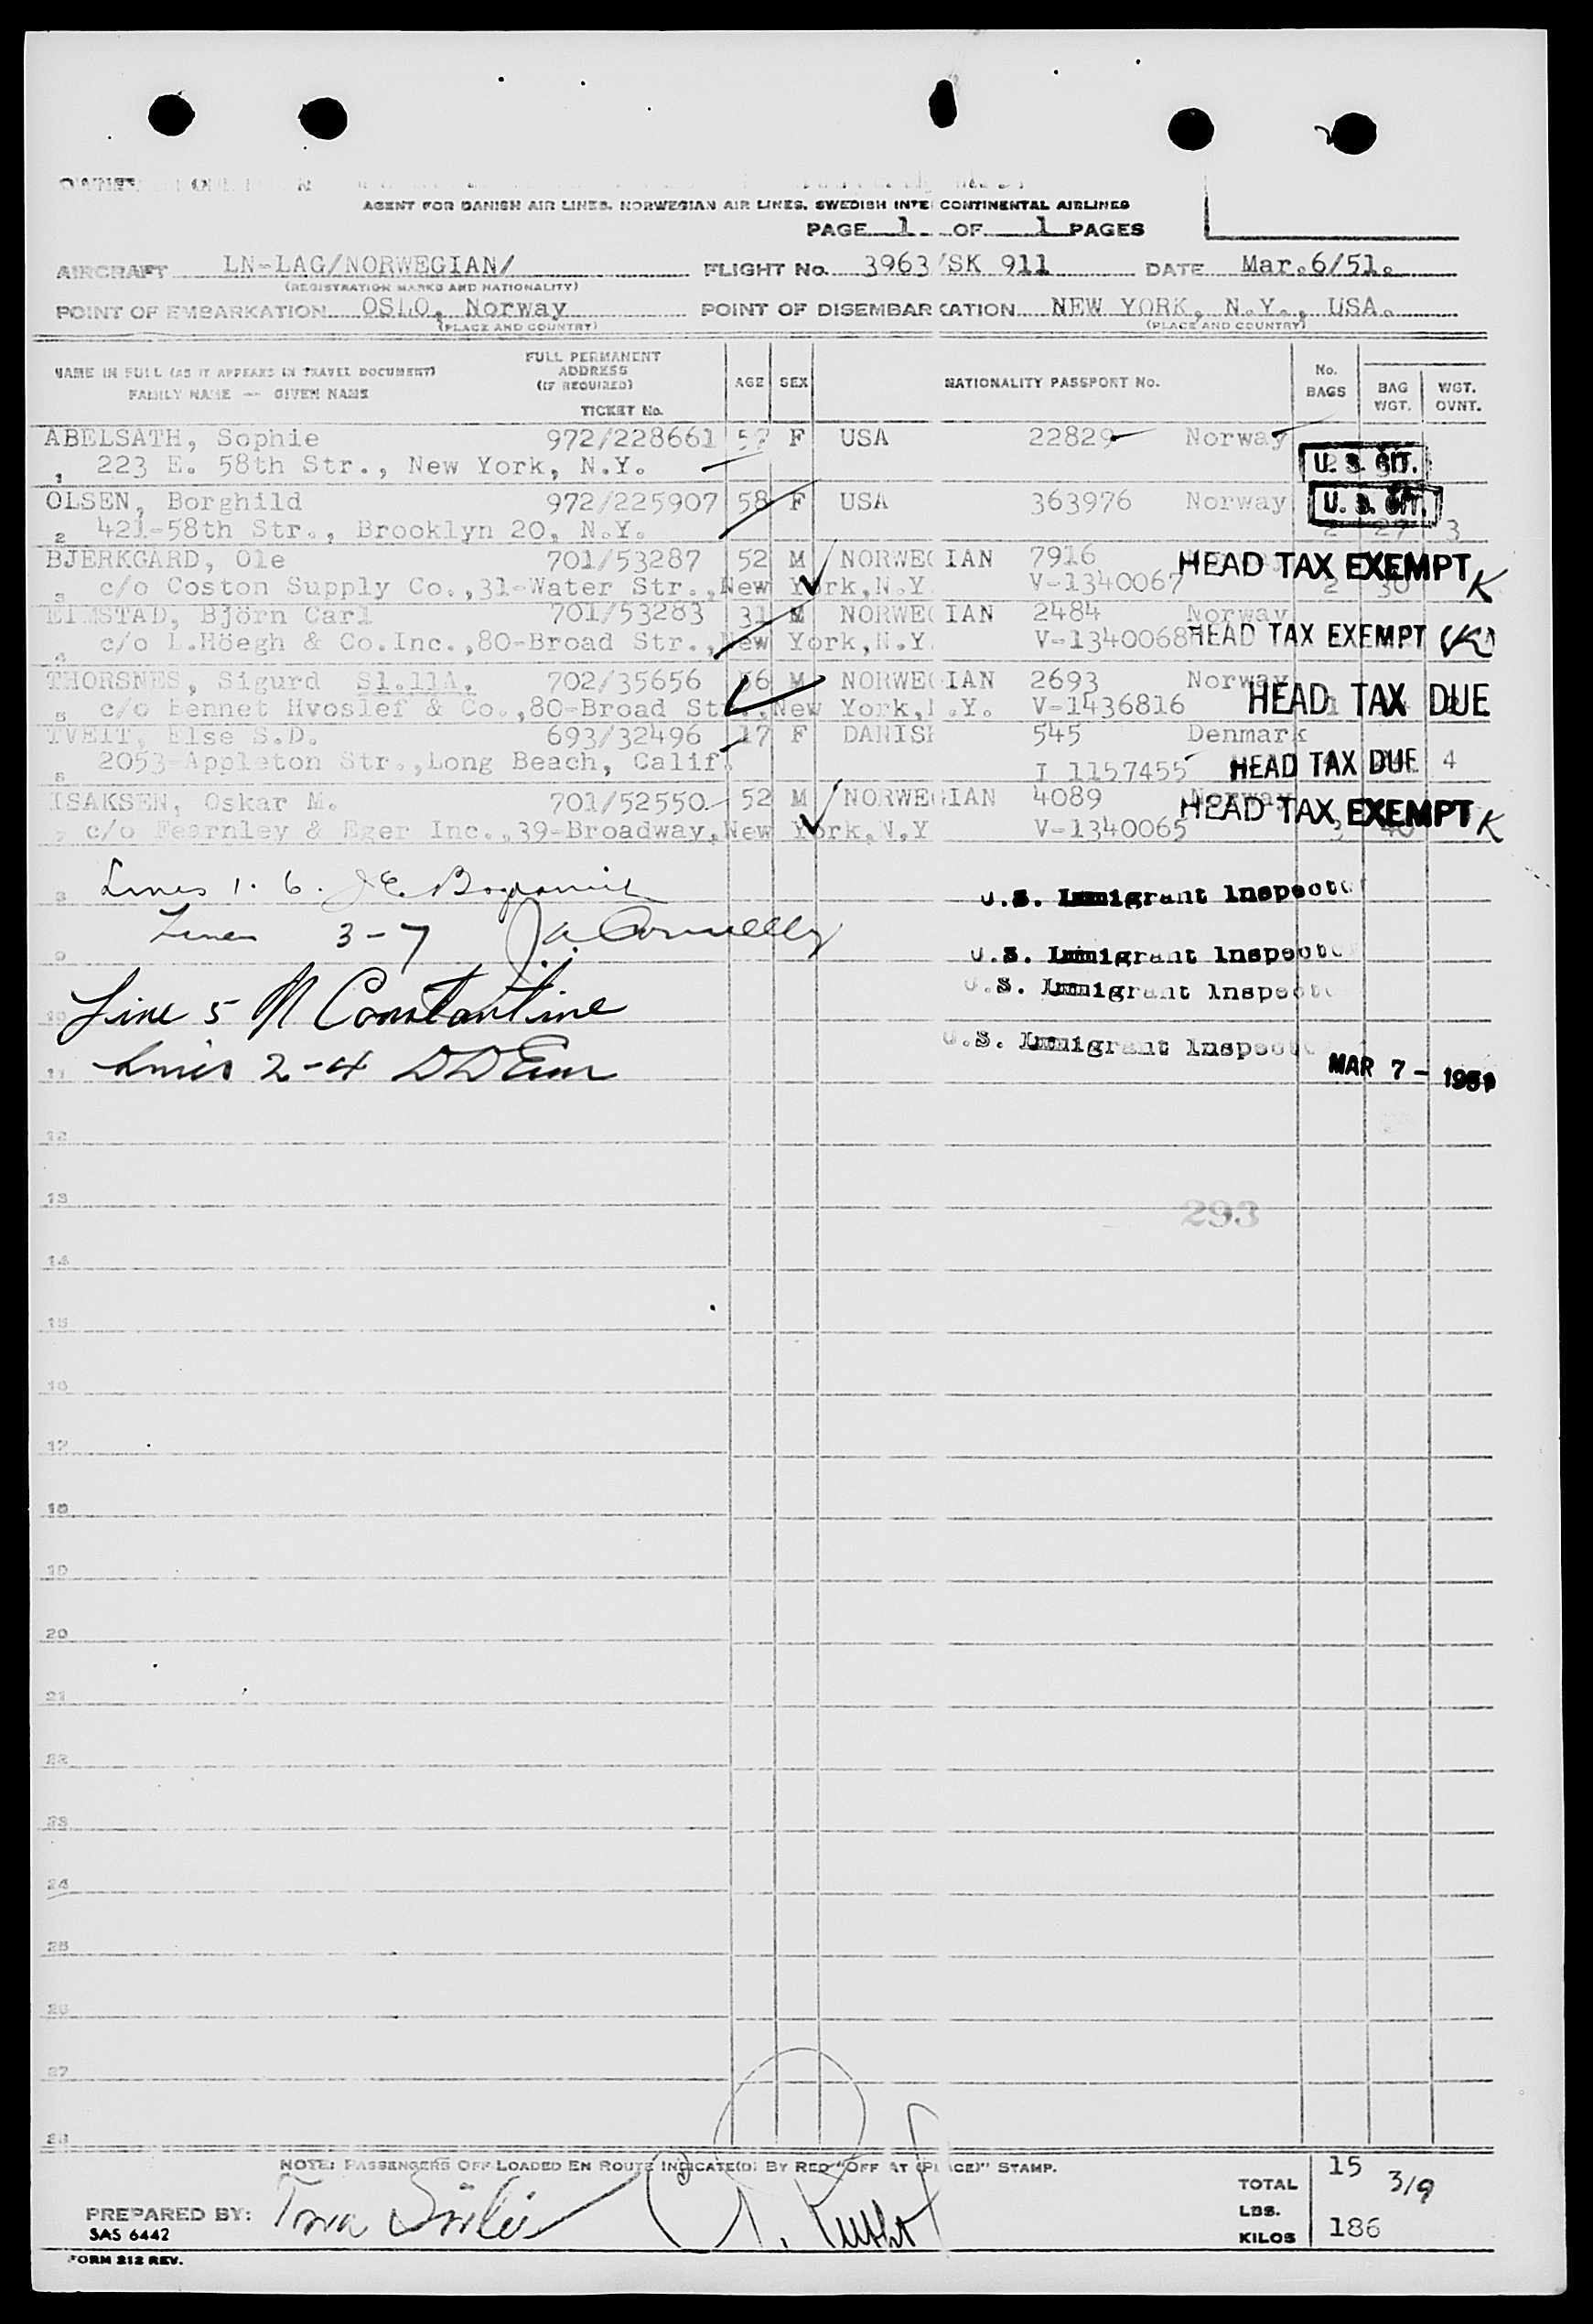 AGENT FOR DANISH AIR LINES. NORWEGIAN AIR LINES. SWEDISH INTE CONTINENTAL AIRLINES
PAGE 1 OF 1 PAGES
AIRCRAFT LN-LAG/NORWEGIAN/ FLIGHT No. 3963/SK 911 DATE Mar.6/51.
(REGISTRATION MARKS AND NATIONALITY)
POINT OF EMBARKATION OSLO, Norway POINT OF DISEMBARCATION NEW YORK, N.Y., USA.
(PLACE AND COUNTRY) (PLACE AND COUNTRY)
NAME IN FULL (AS IT APPEARS IN TRAVEL DOCUMENT) FULL PERMANENT ADDRESS (IF REQUIRED) AGE SEX NATIONALITY PASSPORT No. No. BAGS BAG WGT. WGT. OVNT.
FAMILY NAME — GIVEN NAME TICKET No.
ABELSATH, Sophie 972/228661 F USA 22829 Norway
1 223 E. 58th Str., New York, N.Y. U. S. CIT.
OLSEN, Borghild 972/225907 58 F USA 363976 Norway U. S. CIT.
2 421-58th Str., Brooklyn 20, N.Y. 2 27 3
BJERKGARD, Ole 701/53287 52 M NORWEGIAN 7916 HEAD TAX EXEMPT K
3 c/o Coston Supply Co.,31-Water Str.,New York,N.Y V-1340067 2 30
ELMSTAD, Björn Carl 701/53283 31 M NORWEGIAN 2484 Norway
4 c/o L.Höegh & Co.Inc.,80-Broad Str.,New York,N.Y. V-1340068 HEAD TAX EXEMPT (K)
THORSNES, Sigurd Sl.11A. 702/35656 56 M NORWEGIAN 2693 Norway
5 c/o Bennet Hvoslef & Co.,80-Broad Str.,New York,N.Y. V-1436816 HEAD TAX DUE
TVEIT, Else S.D. 693/32496 17 F DANISH 545 Denmark
6 2053-Appleton Str.,Long Beach, Calif. I 1157455 HEAD TAX DUE 4
ISAKSEN, Oskar M. 701/52550 52 M NORWEGIAN 4089 Norway HEAD TAX EXEMPT K
7 c/o Fearnley & Eger Inc.,39-Broadway,New York,N,Y V-1340065 3 40
8 Lines 1. 6. U.S. Immigrant Inspector
9 Lines 3-7 J.A. Connelly U.S. Immigrant Inspector
U.S. Immigrant Inspector
10 Line 5 N Constantine
U.S. Immigrant Inspector
11 Lines 2-4 MAR 7 - 1951
12
13
293
14
15
16
17
18
19
20
21
22
23
24
25
26
27
28
NOTE: PASSENGERS OFF LOADED EN ROUTE INDICATE(D) BY RED "OFF AT (PLACE)" STAMP.
TOTAL 15 319
PREPARED BY: LBS.
SAS 6442 KILOS 186
FORM 212 REV.